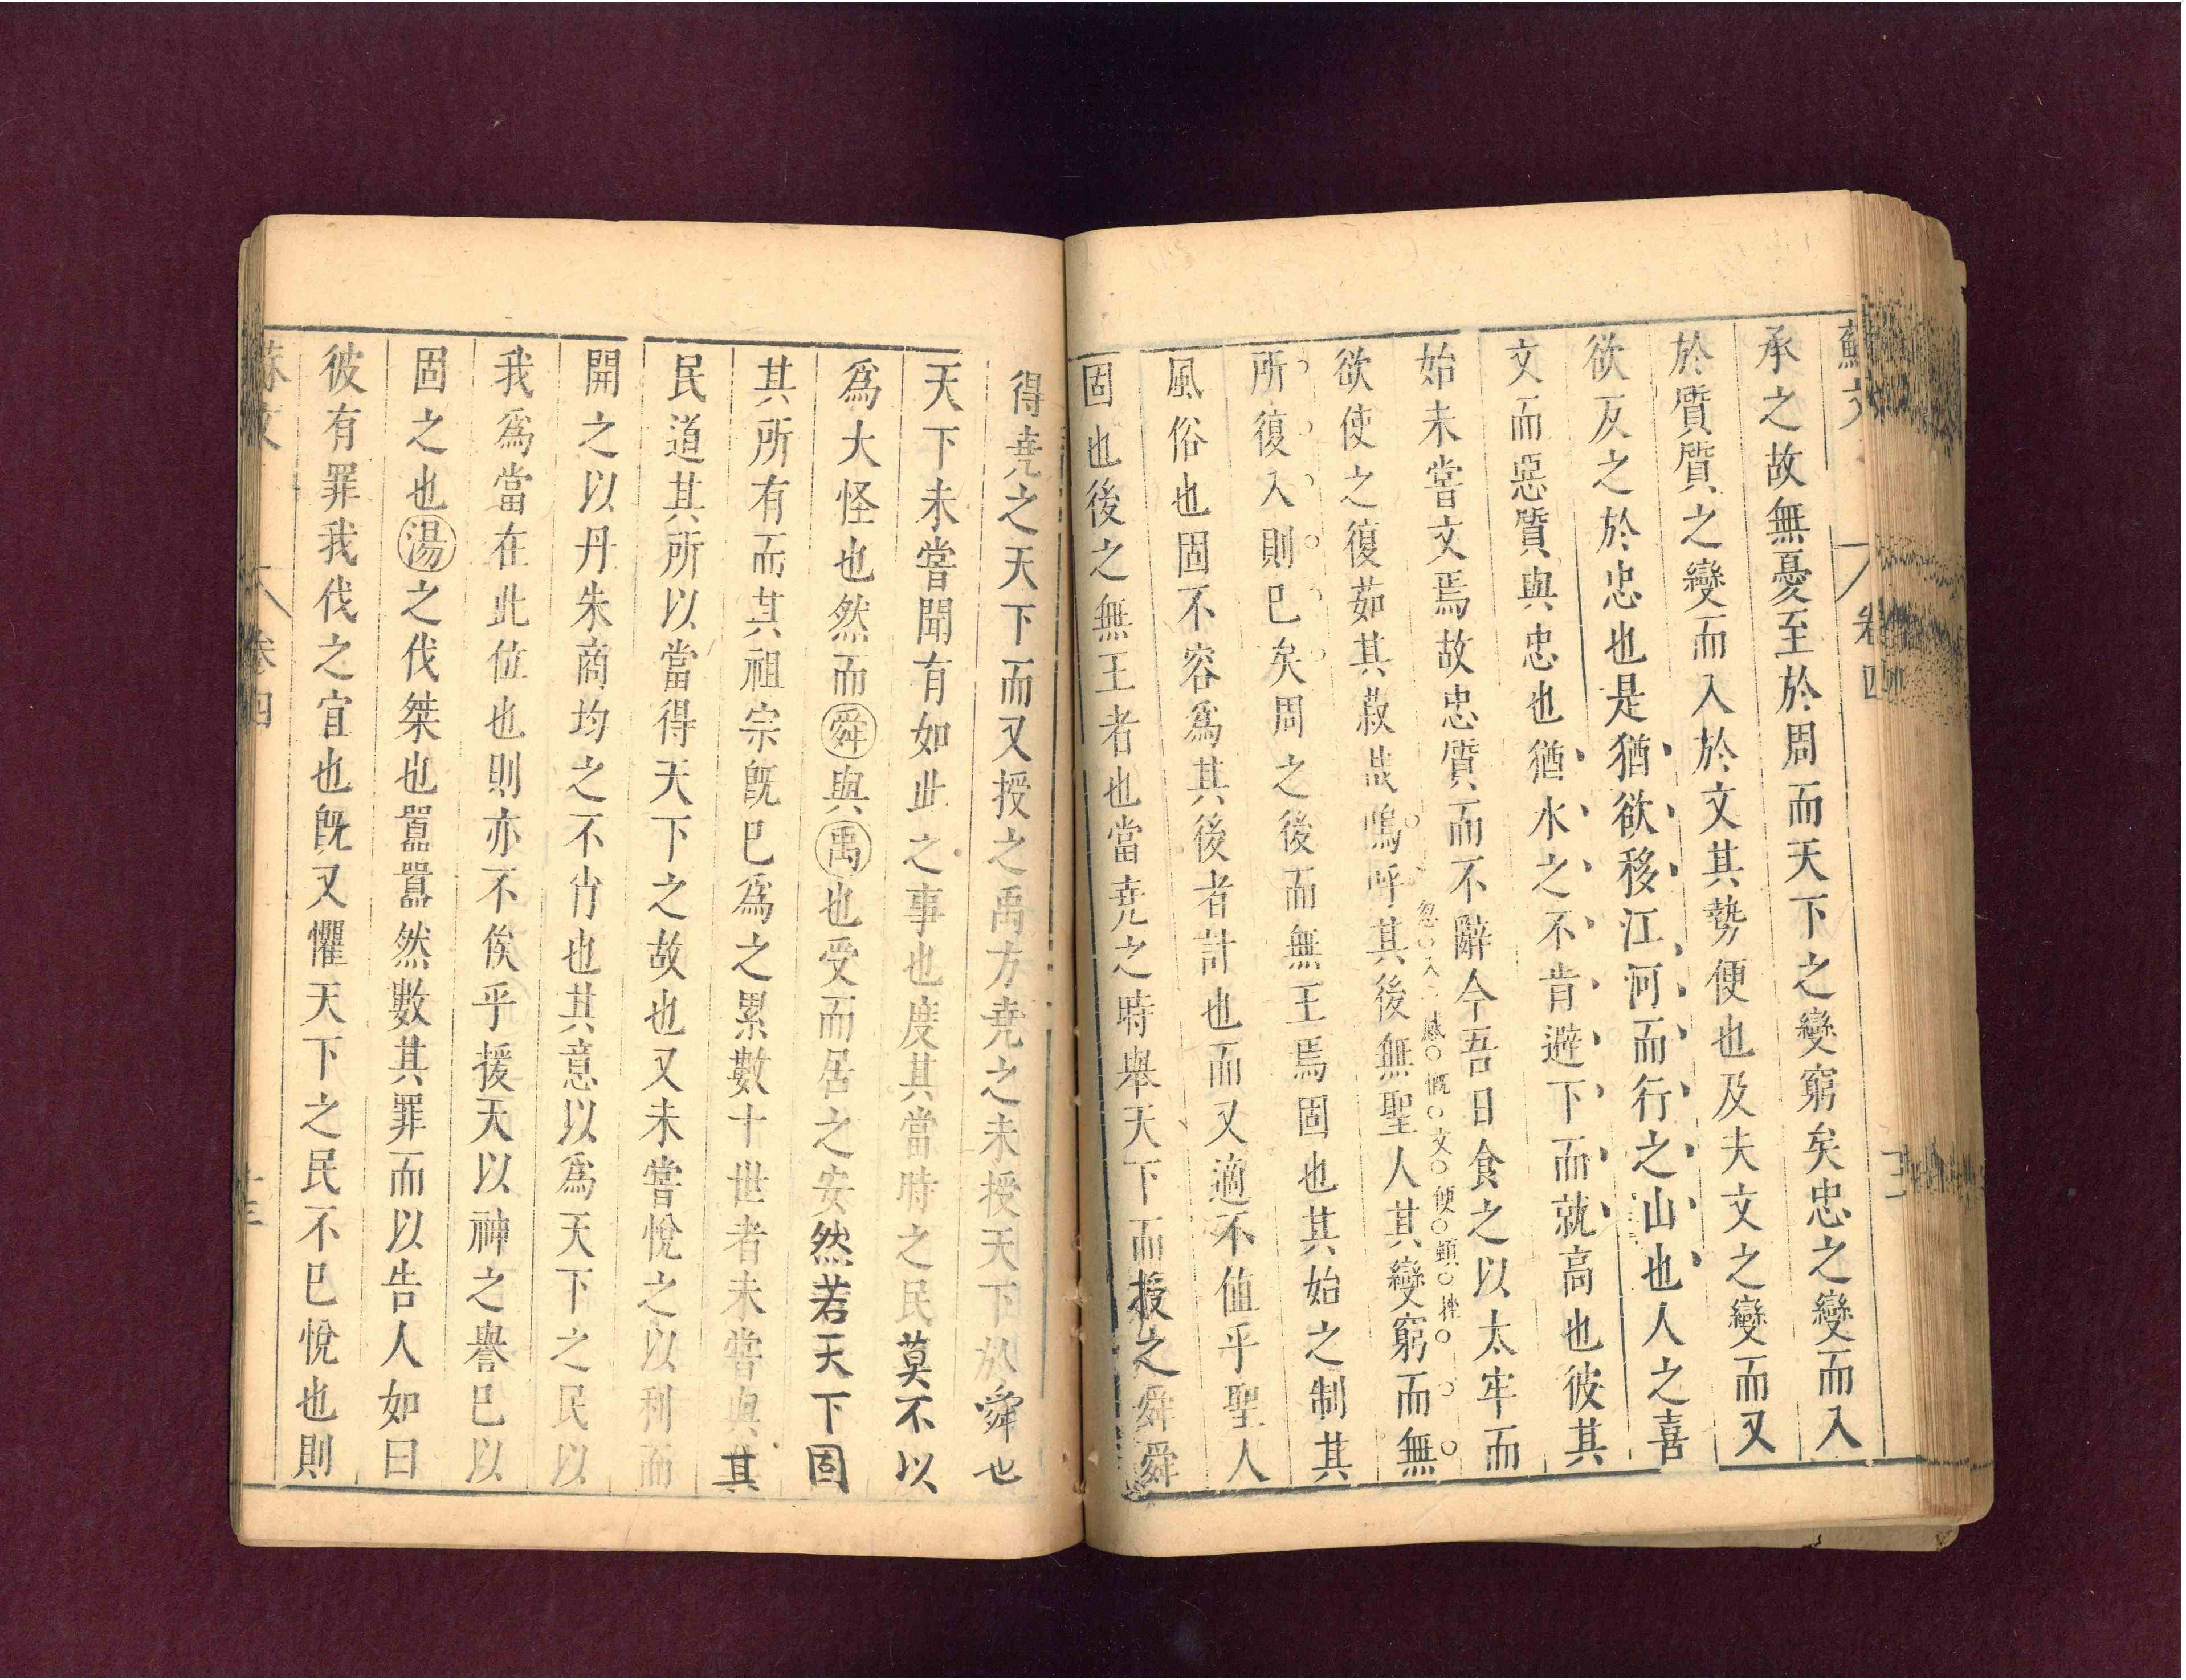 蘇文
卷四
承之故無憂至於周而天下之變窮矣忠之變而入
於質質之變而入於文其勢便也及夫文之變而又
欲反之於忠也是猶欲移江河而行之山也人之喜
文而惡質與忠也猶水之不肯避下而就高也彼其
始未嘗文焉故忠質而不辭今吾日食之以太牢而
欲使之復茹其菽哉嗚呼其後無聖人其變窮而無
忽入感慨文便頓挫
所復入則已矣周之後而無王焉固也其始之制其
風俗也固不容爲其後者計也而又適不值乎聖人
固也後之無王者也當堯之時舉天下而授之舜舜
得堯之天下而又授之禹方堯之未授天下於舜也
天下未嘗聞有如此之事也度其當時之民莫不以
爲大怪也然而舜與禹也受而居之安然若天下固
其所有而其祖宗旣已爲之累數十世者未嘗與其
民道其所以當得天下之故也又未嘗悅之以利而
開之以丹朱商均之不肖也其意以爲天下之民以
我爲當在此位也則亦不俟乎援天以神之譽已以
固之也湯之伐桀也囂囂然數其罪而以告人如曰
彼有罪我伐之宜也旣又懼天下之民不已悅也則
蘇文
卷四